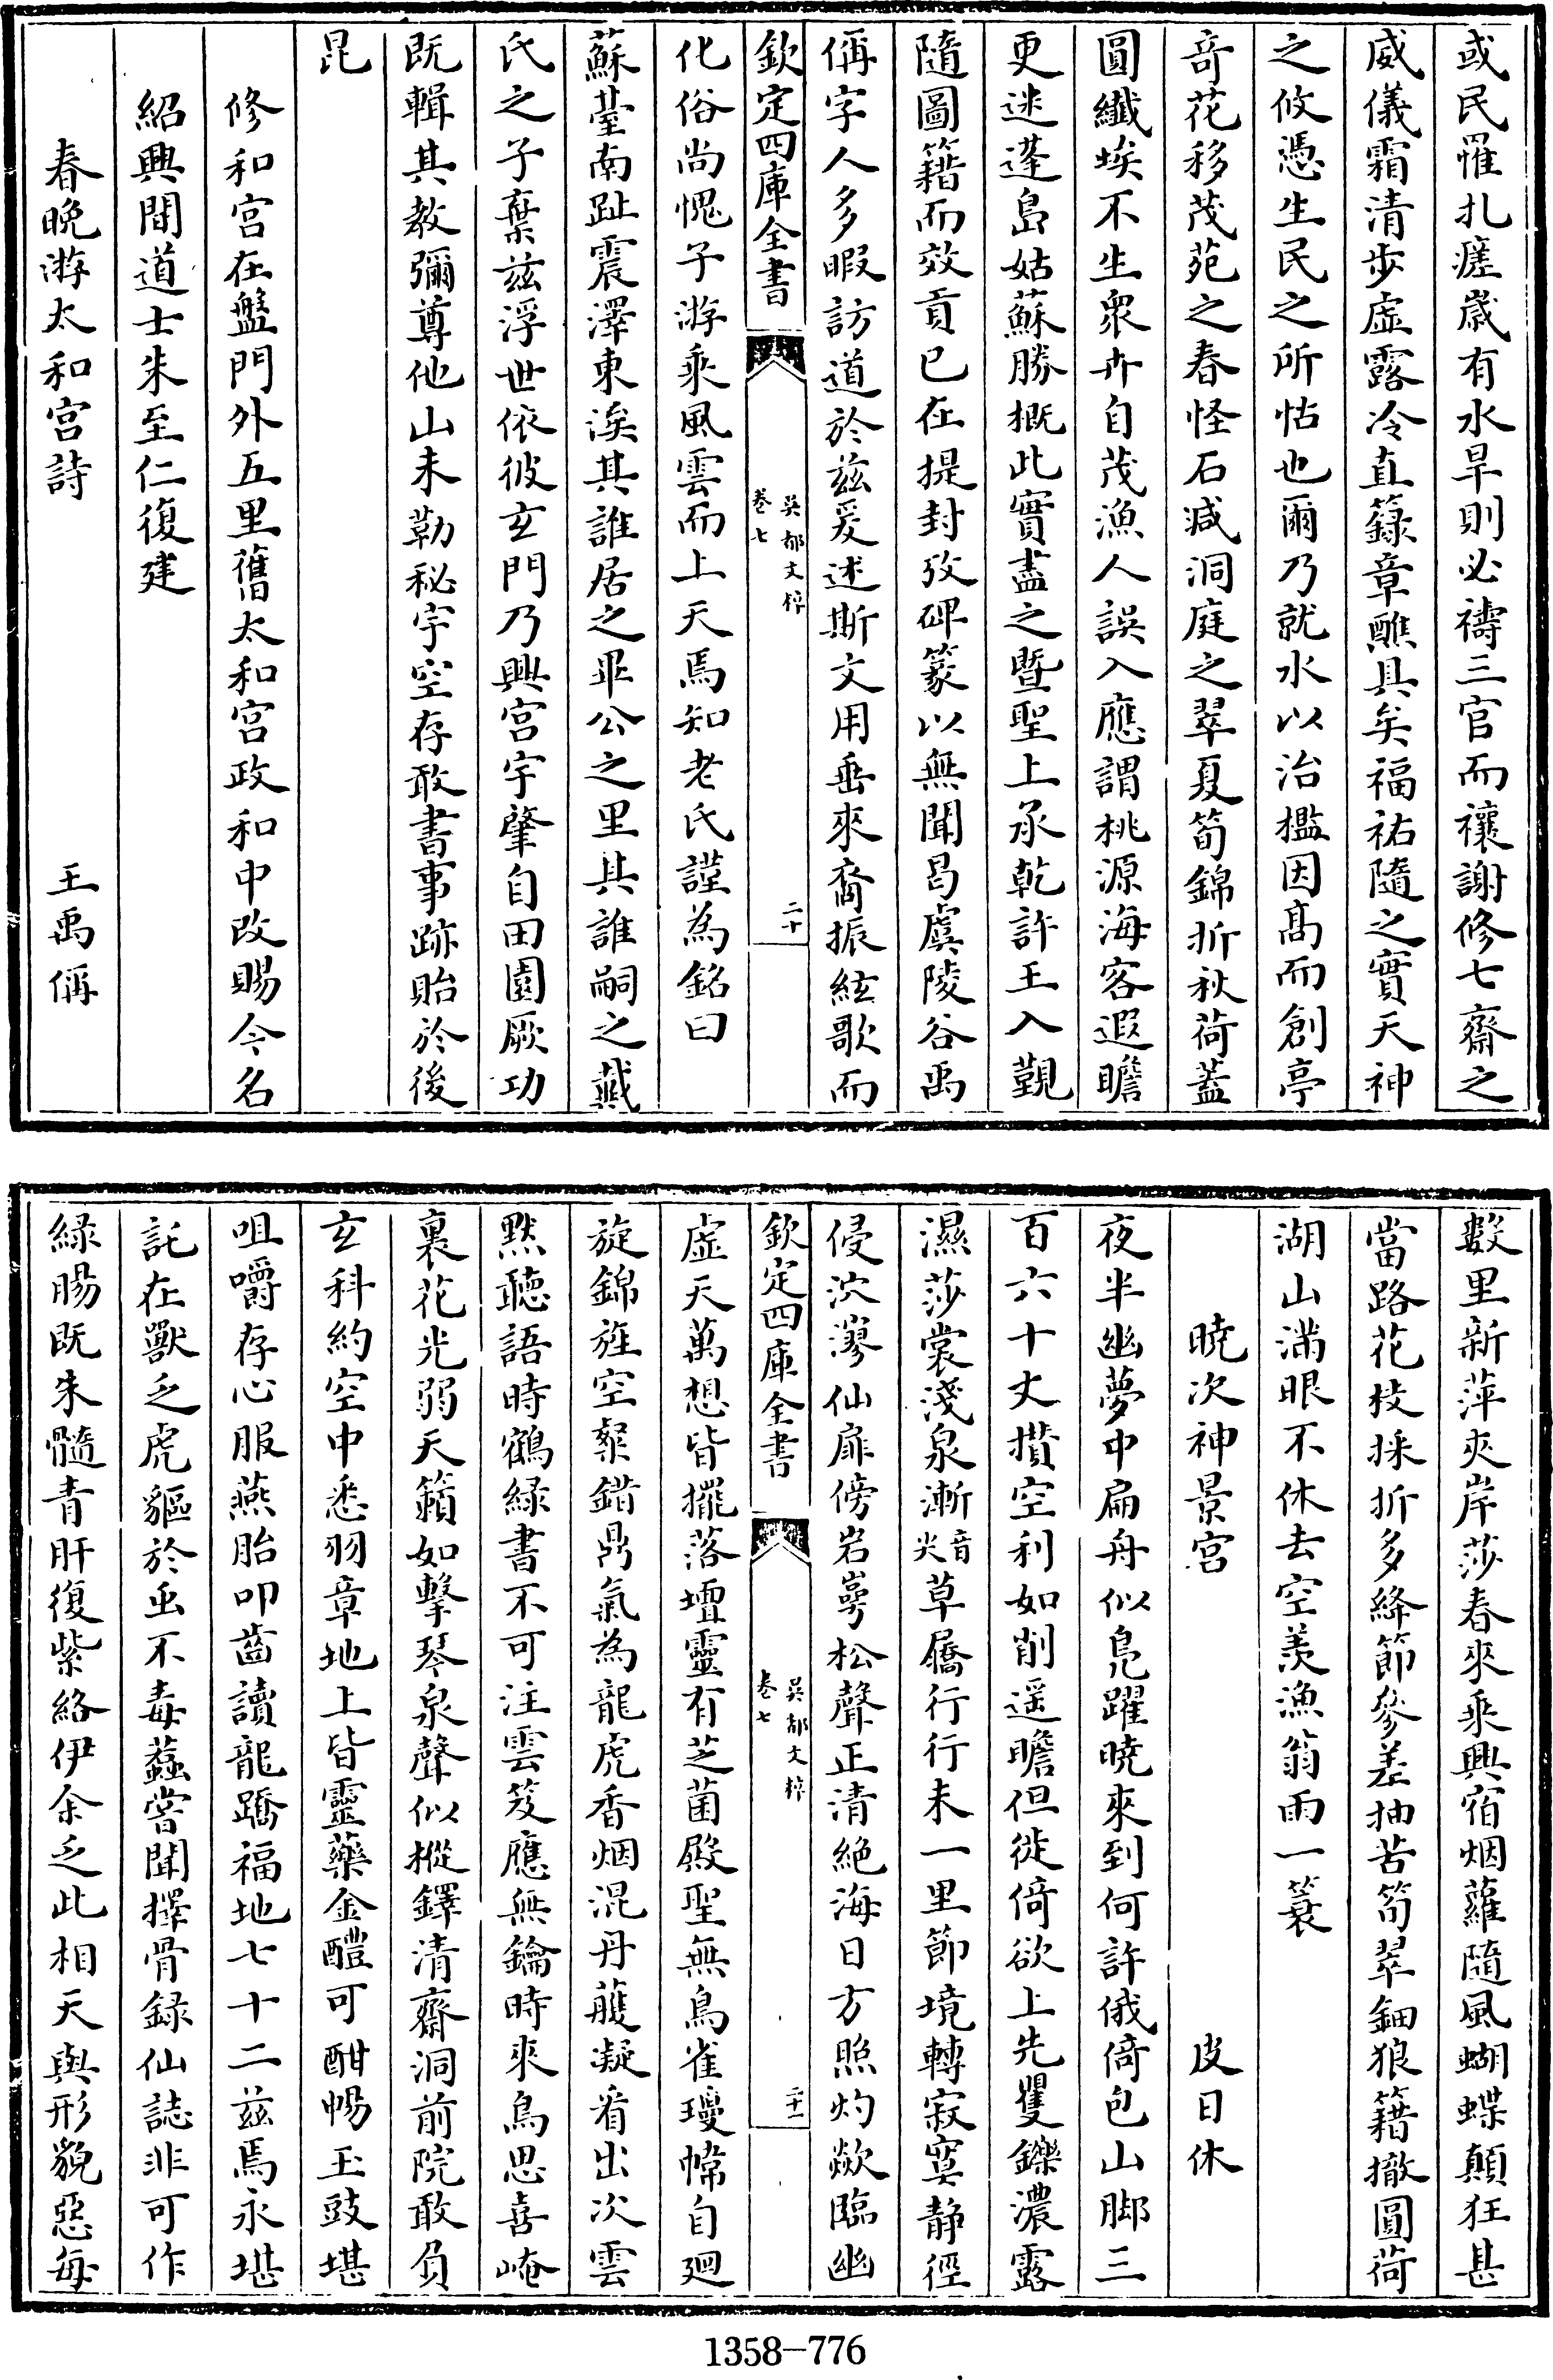 或民罹扎瘥嵗有水旱則必禱三官而禳謝修七齋之
威儀霜清步虚露冷直籙章醮具矣福祐隨之實天神
之攸憑生民之所怙也爾乃就水以治檻因髙而創亭
竒花移茂苑之春怪石減洞庭之翠夏筍錦折秋荷蓋
圓纖埃不生衆卉自茂漁人誤入應謂桃源海客遐瞻
更迷蓬島姑蘇勝概此實盡之暨聖上承乾許王入覲
隨圖籍而效貢已在提封攷碑篆以無聞曷虞陵谷禹
偁字人多暇訪道於兹爰述斯文用垂來裔振絃歌而
欽定四庫全書
吳都文粹
卷七
二十
化俗尚愧子游乘風雲而上天焉知老氏謹為銘曰
蘇䑓南趾震澤東涘其誰居之畢公之里其誰嗣之臧
氏之子棄兹浮世依彼玄門乃興宫宇肇自田園厥功
既輯其教彌尊他山未勒秘宇空存敢書事跡貽於後
昆
修和宫在盤門外五里舊太和宫政和中改賜今名
紹興間道士朱至仁復建
春晩游太和宫詩 王禹偁
數里新萍夾岸莎春來乘興宿烟蘿隨風蝴蝶顛狂甚
當路花枝採折多絳節參差抽苦筍翠鈿狼籍撤圓荷
湖山滿眼不休去空羡漁翁雨一蓑
曉次神景宫 皮日休
夜半幽夢中扁舟似鳬躍曉來到何許俄倚包山脚三
百六十丈攢空利如削遥瞻但徙倚欲上先矍鑠濃露
濕莎裳淺泉漸音尖草屩行行未一里節境轉寂寞静徑
侵泬漻仙扉傍岩崿松聲正清絶海日方照灼歘臨幽
欽定四庫全書
吳都文粹
卷七
二十一
虚天萬想皆擺落壇靈有芝菌殿聖無鳥雀瓊幃自廻
旋錦旌空粲錯鼎氣為龍虎香烟混丹雘凝看出次雲
黙聽語時鶴緑書不可注雲笈應無鑰時來鳥思喜崦
裏花光弱天籟如擊琴泉聲似摐鐸清齋洞前院敢負
玄科約空中悉羽章地上皆靈藥金醴可酣暢玉豉堪
咀嚼存心服燕胎叩齒讀龍蹻福地七十二兹焉永堪
託在獸乏虎貙於虫不毒蠚嘗聞擇骨録仙誌非可作
緑腸既朱髓青肝復紫絡伊余乏此相天與形貌惡每
1358-776